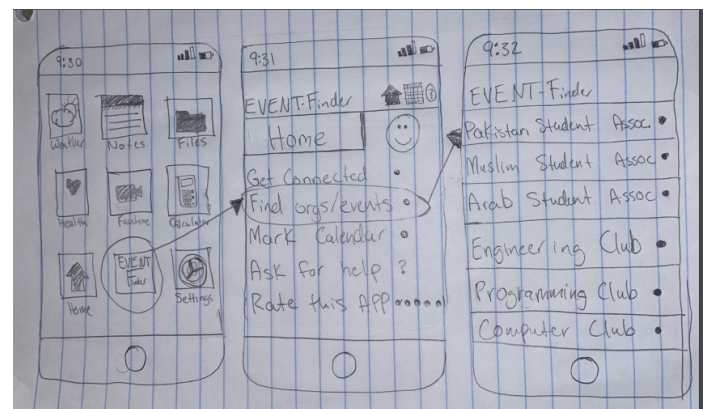 9:30
Weather
Notes
Files
Health
Facetime
Calculator
Home
EVENT
Finder
Settings
9:31
EVENT-Finder
Home
Get Connected
Find orgs/events
Mark Calendar
Ask for help ?
Rate this APP
9:32
EVENT-Finder
Pakistan Student Assoc.
Muslim Student Assoc
Arab Student Assoc
Engineering Club
Programming Club
Computer Club